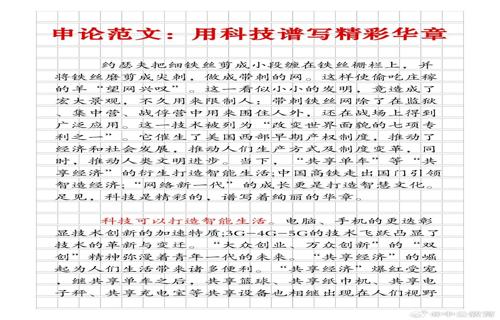 申论范文：用科技谱写精彩华章
约瑟夫把细铁丝剪成小段缠在铁丝栅栏上，并
将铁丝磨剪成尖刺，做成带刺的网。这样使偷吃庄稼
的羊“望网兴叹”。这一看似小小的发明，竟造成了
宏大景观，不久用来限制人；带刺铁丝网除了在监狱
、集中营、战俘营中用来围住人外，还在战场上得到
广泛应用。这一技术被列为“改变世界面貌的七项专
利之一”。它催生了美国西部早期产权制度，推动了
经济和社会发展，推动人们生产方式及制度变革，同
时，推动人类文明进步。当下，“共享单车”等“共
享经济”的衍生打造智能生活;中国高铁走出国门引领
智造经济;“网络新一代”的成长更是打造智慧文化。
足见，科技是精彩的，谱写着绚丽的华章。
科技可以打造智能生活。电脑、手机的更迭彰
显技术创新的加速特质;3G-4G-5G的技术飞跃凸显了
技术的革新与变迁。“大众创业、万众创新”的“双
创”精神弥漫着青年一代的未来。“共享经济”的崛
起为人们生活带来诸多便利。“共享经济”爆红受宠
，继共享单车之后，共享篮球、共享纸巾机、共享电
子秤、共享充电宝等共享设备也相继出现在人们视野
@中公教育